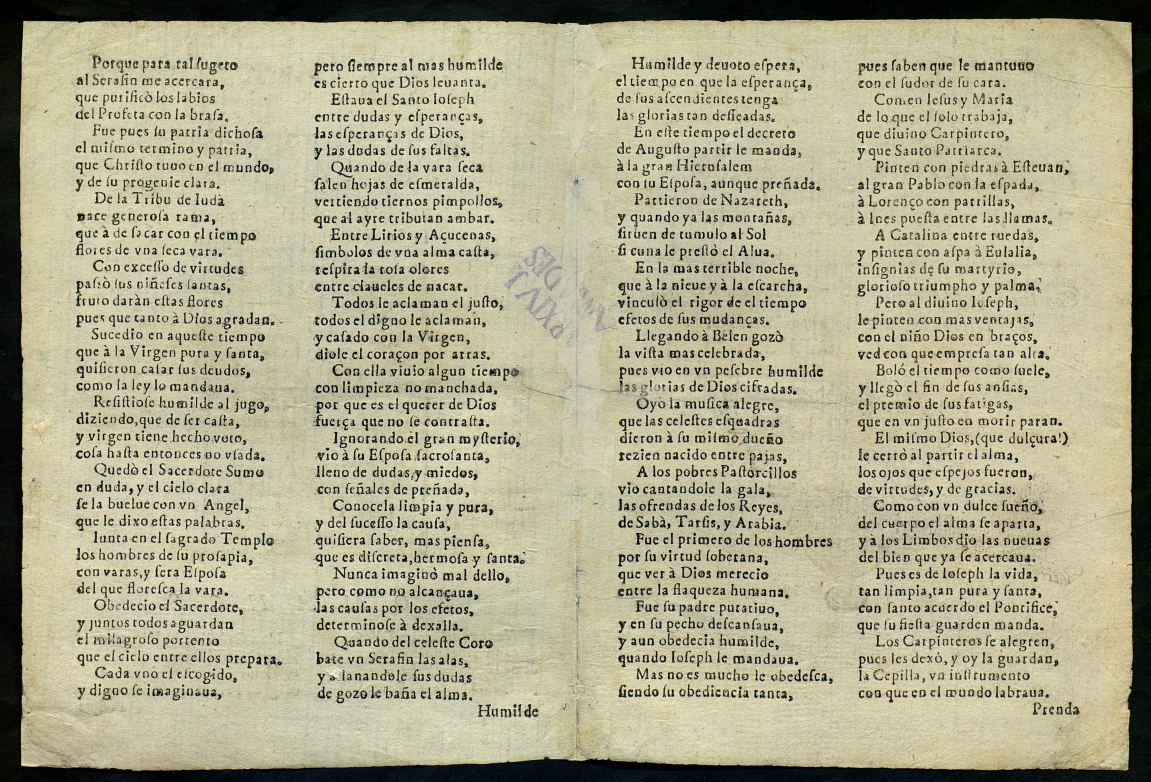 Porque para tal sugeto
al Serafin me acercara,
que purificò los labios
del Profeta con la brasa.
Fue pues su patria dichosa
el mismo termino y patria,
que Christo tuuo en el mundo,
y de su progenie clara.
De la Tribu de Iudà
nace generosa rama,
que à de sacar con el tiempo
flores de vna seca vara.
Con excesso de virtudes
passò sus niñeses santas,
fruto daràn estas flores
pues que tanto à Dios agradan.
Sucedio en aqueste tiempo
que à la Virgen pura y santa,
quisieron casar sus deudos,
como la ley lo mandaua.
Resistiose humilde al jugo,
diziendo, que de ser casta,
y virgen tiene hecho voto,
cosa hasta entonces no vsada.
Quedò el Sacerdote Sumo
en duda, y el cielo clara
se la buelue con vn Angel,
que le dixo estas palabras.
Iunta en el sagrado Templo
los hombres de su prosapia,
con varas, y sera Esposa
del que floresca la vara.
Obedecio el Sacerdote,
y juntos todos aguardan
el milagroso portento
que el cielo entre ellos prepara.
Cada vno el escogido,
y digno se imaginaua,
pero siempre al mas humilde
es cierto que Dios leuanta.
Estaua el Santo Ioseph
entre dudas y esperanças,
las esperanças de Dios,
y las dudas de sus faltas.
Quando de la vara seca
salen hojas de esmeralda,
vertiendo tiernos pimpollos,
que al ayre tributan ambar.
Entre Lirios y Açucenas,
simbolos de vna alma casta,
respira la rosa olores
entre claueles de nacar.
Todos le aclaman el justo,
todos el digno le aclaman,
y casado con la Virgen,
diole el coraçon por arras.
Con ella viuio algun tiempo
con limpieza no manchada,
por que es el querer de Dios
fuerça que no se contrasta.
Ignorando el gran mysterio,
vio à su Esposa sacrosanta,
lleno de dudas, y miedos,
con señales de preñada,
Conocela limpia y pura,
y del sucesso la causa,
quisiera saber, mas piensa,
que es discreta, hermosa y santa.
Nunca imaginò mal dello,
pero como no alcançaua,
las causas por los efetos,
determinose à dexalla.
Quando del celeste Coro
bate vn Serafin las alas,
y allanandole sus dudas
de gozo le baña el alma.
Humilde
Humilde y deuoto espera,
el tiempo en que la esperança,
de sus ascendientes tenga
las glorias tan deseadas.
En este tiempo el decreto
de Augusto partir le manda,
à la gran Hierusalem
con su Esposa, aunque preñada.
Partieron de Nazareth,
y quando ya las montañas,
siruen de tumulo al Sol
si cuna le prestò el Alua.
En la mas terrible noche,
que à la nieue y à la escarcha,
vinculò el rigor de el tiempo
efetos de sus mudanças.
Llegando à Belen gozò
la vista mas celebrada,
pues vio en vn pesebre humilde
las glorias de Dios cifradas.
Oyò la musica alegre,
que las celestes esquadras
dieron à su mismo dueño
rezien nacido entre pajas,
A los pobres Pastorcillos
vio cantandole la gala,
las ofrendas de los Reyes,
de Sabà, Tarsis, y Arabia.
Fue el primero de los hombres
por su virtud soberana,
que ver à Dios merecio
entre la flaqueza humana.
Fue su padre putatiuo,
y en su pecho descansaua,
y aun obedecia humilde,
quando Ioseph le mandaua.
Mas no es mucho le obedesca,
siendo su obediencia tanta,
pues saben que le mantuuo
con el sudor de su cara.
Comen Iesus y Maria
de lo que el solo trabaja,
que diuino Carpintero,
y que Santo Patriarca.
Pinten con piedras à Esteuan,
al gran Pablo con la espada,
à Lorenço con parrillas,
à Ines puesta entre las llamas.
A Catalina entre ruedas,
y pinten con aspa à Eulalia,
insignias de su martyrio,
glorioso triumpho y palma,
Pero al diuino Ioseph,
le pinten con mas ventajas,
con el niño Dios en braços,
ved con que empresa tan alta.
Bolò el tiempo como suele,
y llegò el fin de sus ansias,
el premio de sus fatigas,
que en vn justo en morir paran.
El mismo Dios, (que dulçura!)
le cerrò al partir el alma,
los ojos que espejos fueron,
de virtudes, y de gracias.
Como con vn dulce sueño,
del cuerpo el alma se aparta,
y à los Limbos dio las nueuas
del bien que ya se acercaua.
Pues es de Ioseph la vida,
tan limpia, tan pura y santa,
con santo acuerdo el Pontifice,
que su fiesta guarden manda.
Los Carpinteros se alegren,
pues les dexò, y oy la guardan,
la Cepilla, vn instrumento
con que en el mundo labraua.
Prenda